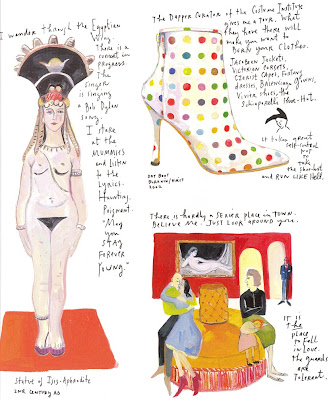 I
wander through the Egyptian
Wing.
There is a
concert in
progress.
The
singer
is singing
a Bob Dylan
song.
I stare
at the
MUMMIES
and listen
to the
Lyrics.
Haunting.
Poignant.
"May
you
STAY
FOREVER
YOUNG."
Statue of Isis-Aphrodite
2nd CENTURY AD
The Dapper Curator of the Costume Institute
gives me a tour. What
they have there will
make you want to
BURN your Clothes.
Jacobean Jackets,
Victorian Corsets,
Fortuny
dresses, Balenciaga gowns,
Vivier shoes, the
Schiaparelli Shoe-Hat.
It takes great
self-control
NOT
TO
take the
Shoe-Hat
and RUN LIKE HELL.
DOT BOOT
2002
There is hardly a SEXIER place in TOWN.
BELIEVE ME. JUST LOOK AROUND YOU.
IT IS
THE
PLACE
TO FALL
IN LOVE.
The guards
ARE
TOLERANT.